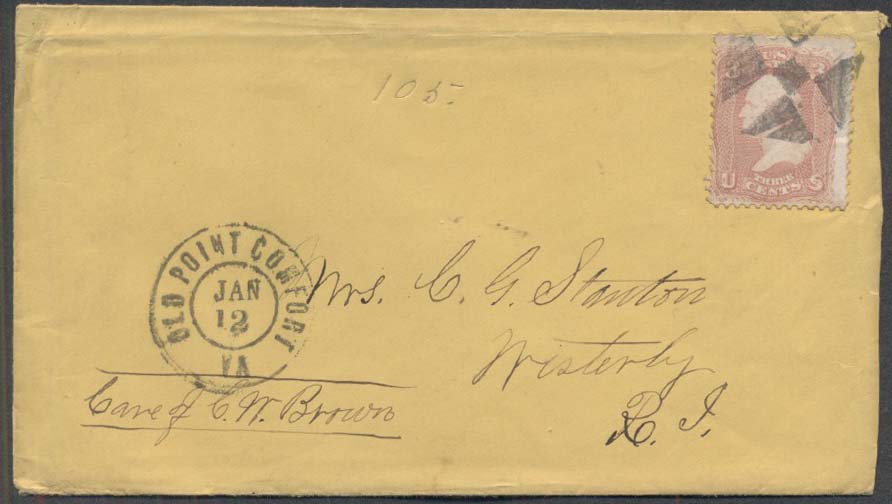 105.
U.S.
3 3
U THREE CENTS S
OLD POINT COMFORT
JAN
12
VA
Mrs. C. G. Stanton
Westerly
R. I.
Care of C. W. Brown